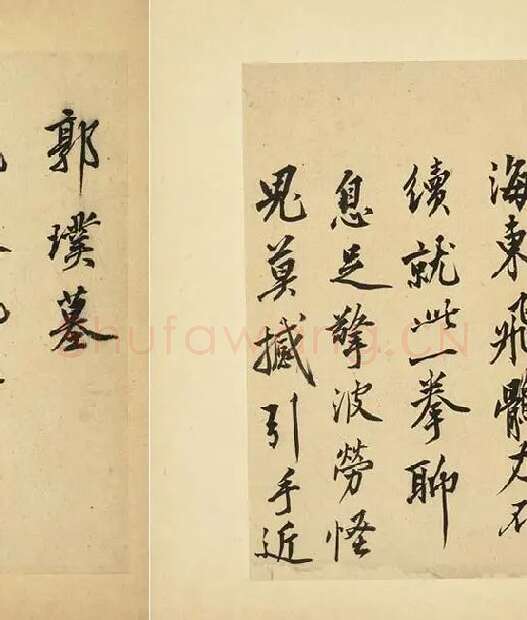 海東飛力不
續就此一拳聊
息足擎波勞怪
鬼莫撼引手近
郭璞墓
shufawang.CN